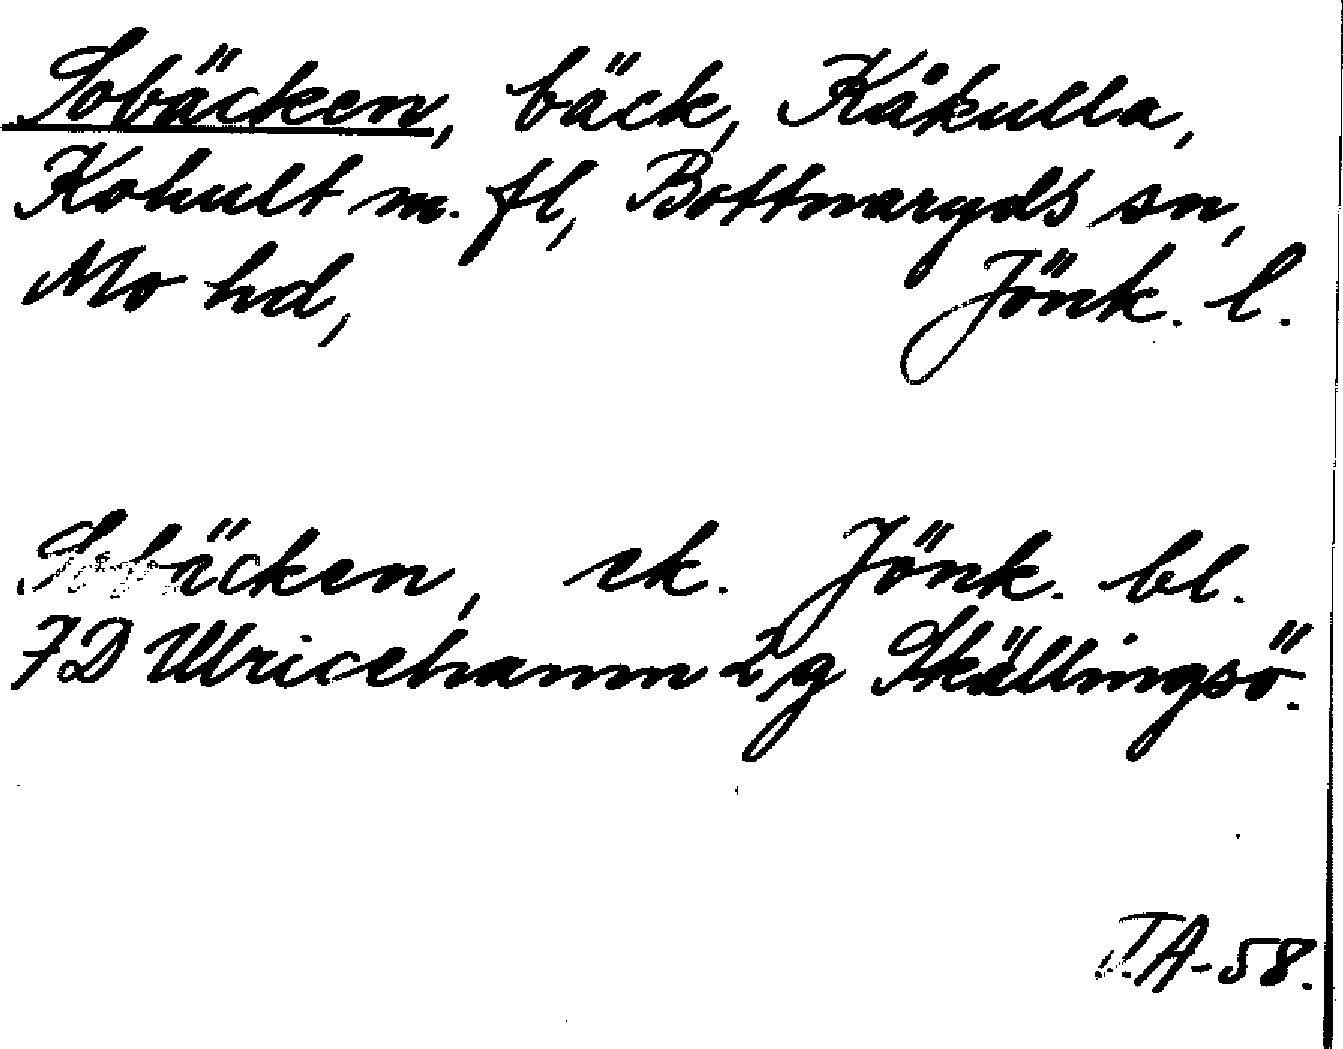 Sobäcken, bäck, Kåkulla,
Kohult m. fl, Bottnaryds sn,
Mo hd, Jönk. l.
Sobäcken, ek. Jönk. bl.
7D Ulricehamn 2,g Skällingsö.
T.A-58.